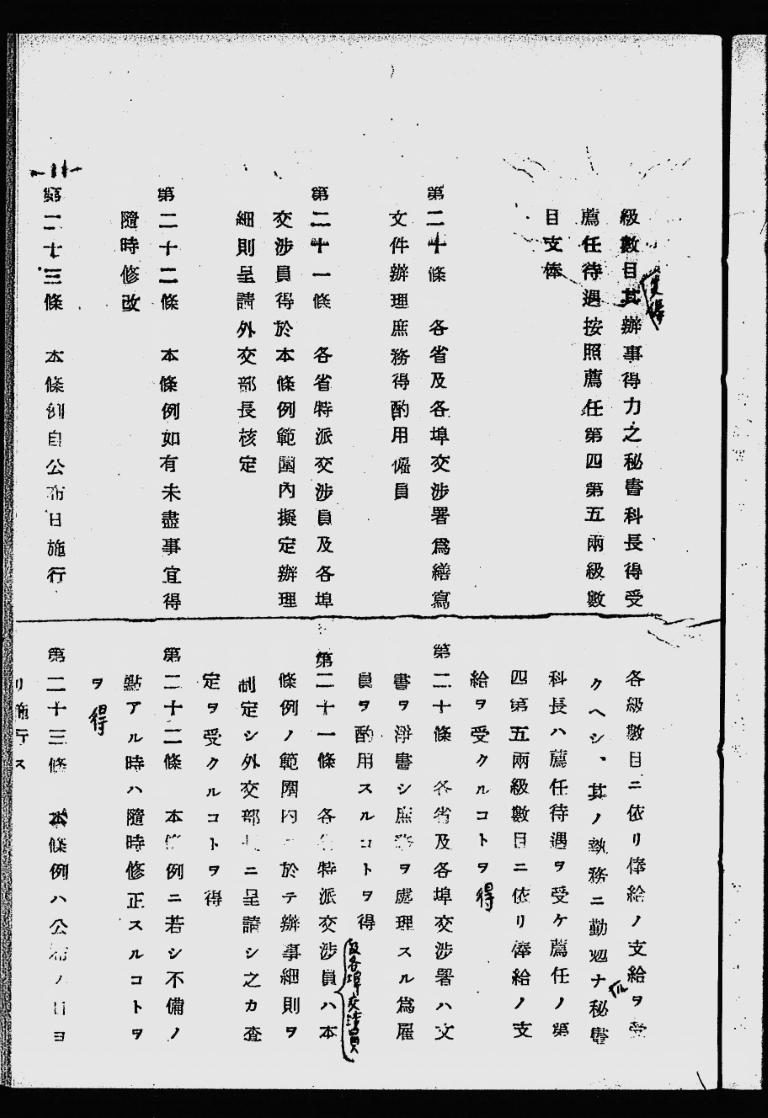 級數目其辦事得力之秘書科長得受
薦任待遇按照薦任第四第五兩級數
目支俸
第二十條　各省及各埠交涉署爲繕寫
文件辦理庶務得酌用僱員
第二十一條　各省特派交涉員及各埠
交涉員得於本條例範圍內擬定辦理
細則呈請外交部長核定
第二十二條　本條例如有未盡事宜得
隨時修改
第二十三條　本條例自公布日施行
各級數目ニ依リ俸給ノ支給ヲ受
クヘシ、其ノ執務ニ勤勉ナル秘書
科長ハ薦任待遇ヲ受ケ薦任ノ第
四第五兩級數目ニ依リ俸給ノ支
給ヲ受クルコトヲ得
第二十條　各省及各埠交涉署ハ文
書ヲ淨書シ庶務ヲ處理スル爲雇
員ヲ酌用スルコトヲ得
第二十一條　各省特派交涉員及各埠交涉員ハ本
條例ノ範圍内ニ於テ辦事細則ヲ
制定シ外交部長ニ呈請シ之カ查
定ヲ受クルコトヲ得
第二十二條　本條例ニ若シ不備ノ
點アル時ハ隨時修正スルコトヲ
ヲ得
第二十三條　本條例ハ公布ノ日ヨ
リ施行ス